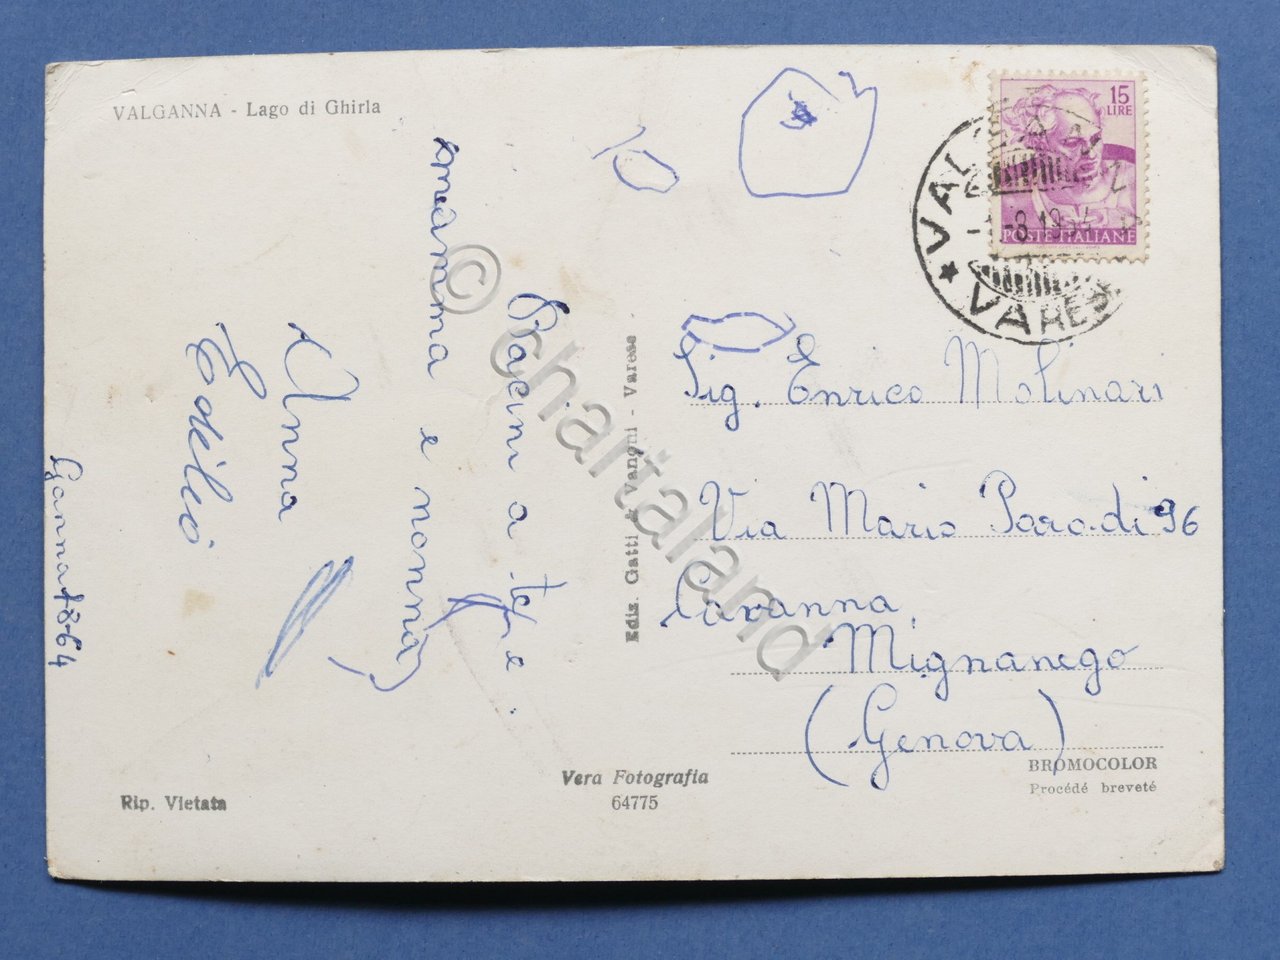 VALGANNA - Lago di Ghirla
15
LIRE
POSTE ITALIANE
VARESE
Ganna 1-8-64
Bacini a te e
mamma e nonna
Anna
Edilio
Ediz. Gatti & Vangni - Varese -
Sig. Enrico Molinari
Via Mario Parodi 96
Cavanna
Mignanego
(Genova)
Rip. Vietata
Vera Fotografia
64775
BROMOCOLOR
Procédé breveté
© chartaland